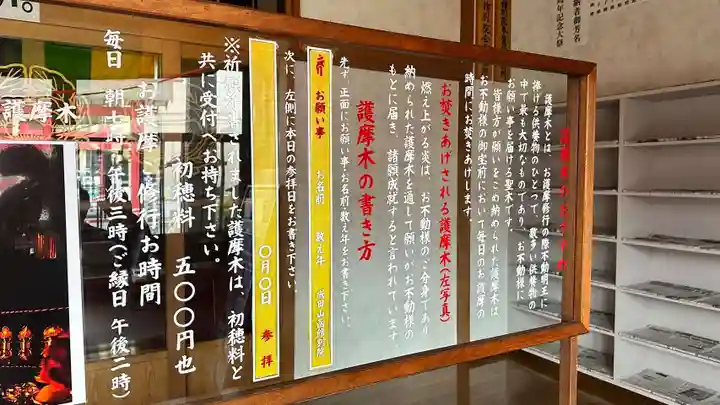 護摩木とは、お護摩修行の際不動明王に
捧げる供養物のひとつで、数多い供養物の
中で最も大切なものであり、お不動様に
お願い事を届ける聖木です。
皆様方が願いをこめ納められた護摩木は
お不動様の御宝前において毎日のお護摩の
時間にお焚きあげします。
お焚きあげされる護摩木(左写真)
燃え上がる炎は、お不動様のご分身であり
納められた護摩木を通して願いがお不動様の
もとに届き、諸願成就すると言われています
護摩木の書き方
先ず、正面にお願い事・お名前・数え年をお書き下さい。
お願い事 お名前 数え年 成田山函館別院
次に、左側に本日の参拝日をお書き下さい。
〇月〇日 参拝
されました護摩木は、初穂料と
共に受付へお持ち下さい。
初穂料 五〇〇円也
お護摩・修行お時間
毎日 朝十時・午後三時(ご縁日 午後二時)
護摩木